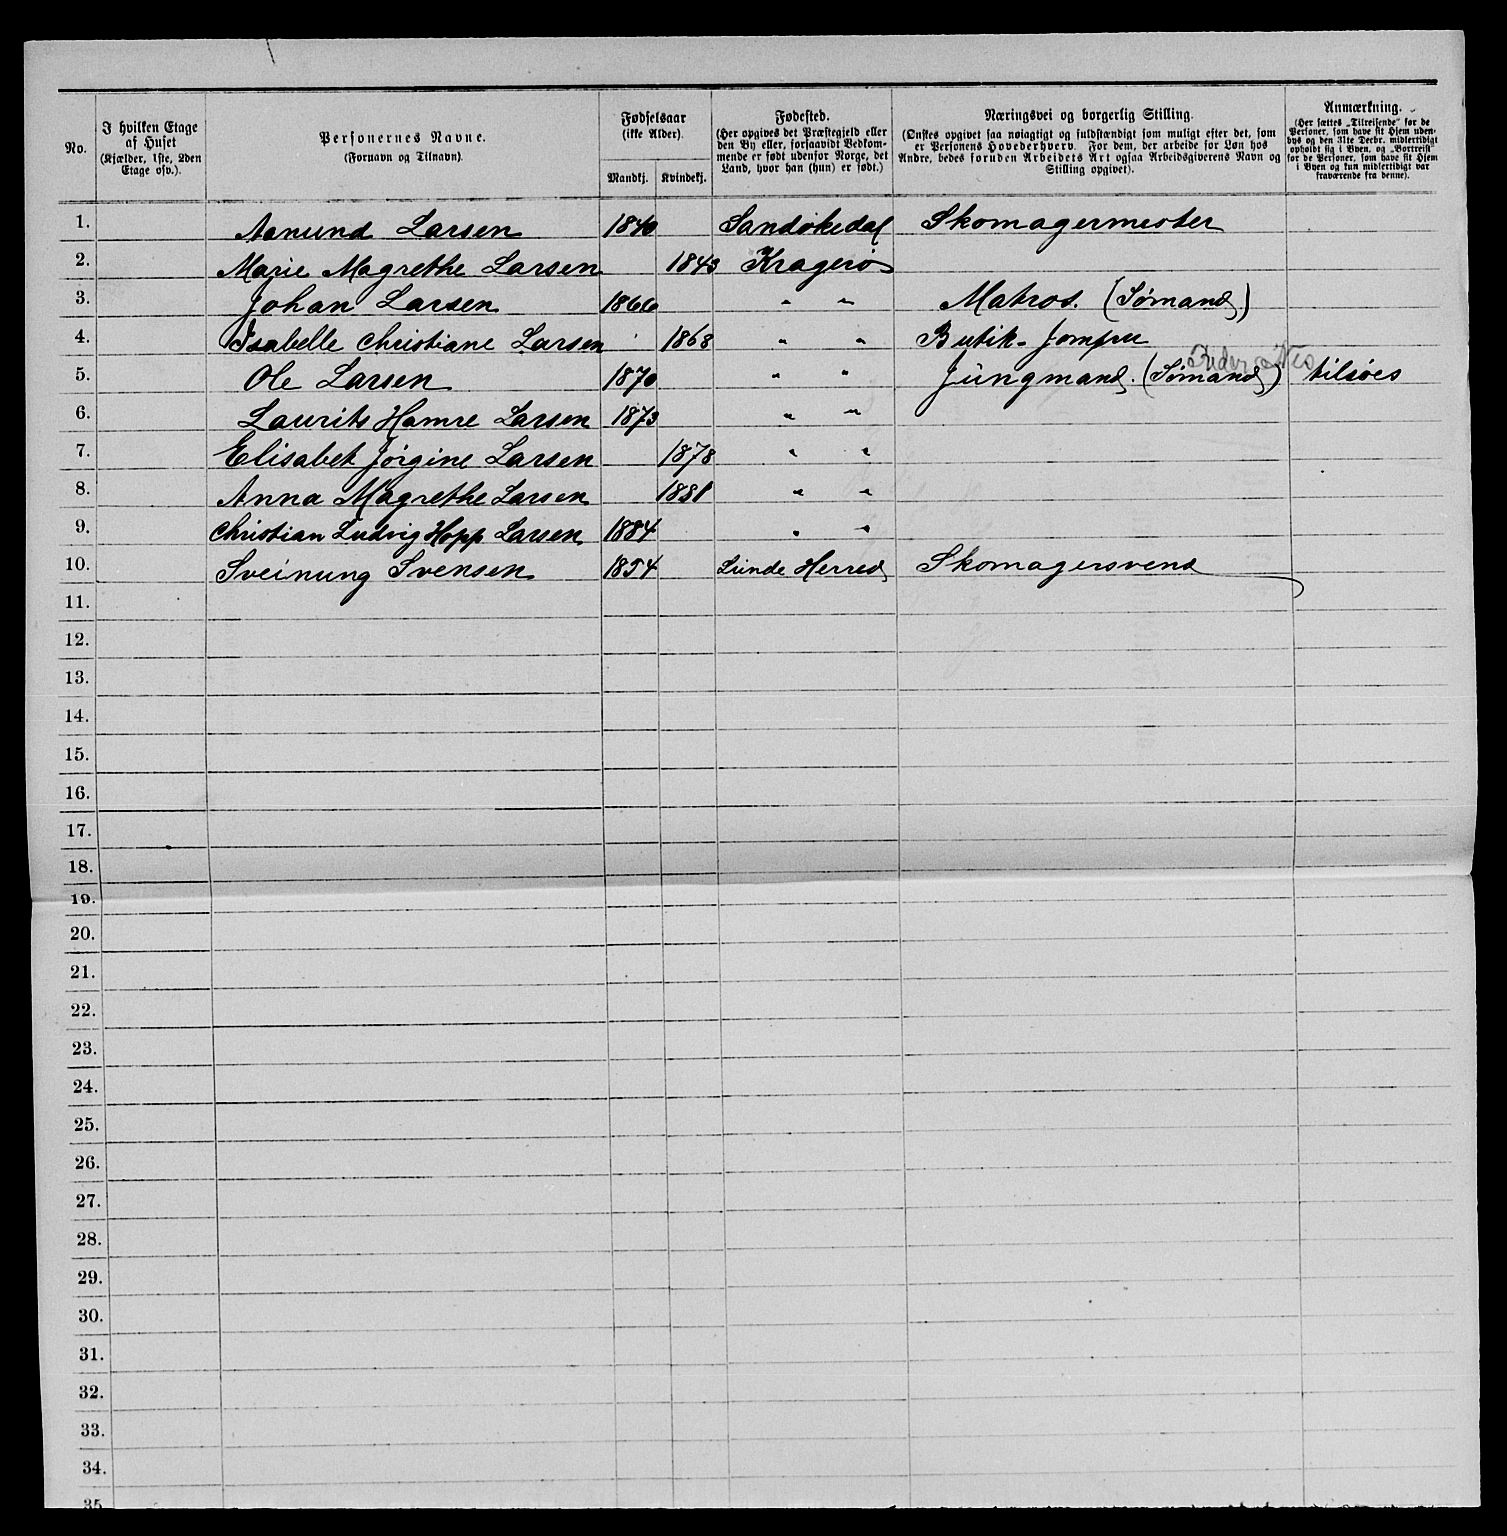 No.
I hvilken Etage af Huset (Kjælder, 1ste, 2den Etage osv.).
Personernes Navne. (Fornavn og Tilnavn).
Fødselsaar (ikke Alder).
Mandkj. Kvindekj.
Fødested. (Her opgives det Præstegjeld eller den By eller, forsaavidt Vedkommende er født udenfor Norge, det Land, hvor han (hun) er født.)
Næringsvei og borgerlig Stilling. (Ønskes opgivet saa nøiagtigt og fuldstændigt som muligt efter det, som er Personens Hovederhverv. For dem, der arbeide for Løn hos Andre, bedes foruden Arbeidets Art ogsaa Arbeidsgiverens Navn og Stilling opgivet).
Anmærkning. (Her sættes „Tilreisende“ for de Personer, som have sit Hjem udenbys og den 31te Decbr. midlertidigt opholdt sig i Byen, og „Bortreist“ for de Personer, som have sit Hjem i Byen og kun midlertidigt var fraværende fra denne).
1. Aanund Larsen 1840 Sandøkedal Skomagermester
2. Marie Magrethe Larsen 1843 Kragerø
3. Johan Larsen 1866 " " Matros. (Sømand)
4. Isabelle Christiane Larsen 1868 " " Butik-Jomfru
5. Ole Larsen 1870 " " Jungmand. (Sømand) tilsøes
6. Laurits Hamre Larsen 1873 " "
7. Elisabet Jørgine Larsen 1878 " "
8. Anna Magrethe Larsen 1881 " "
9. Christian Ludvig Hopp Larsen 1884 " "
10. Sveinung Svensen 1854 Lunde Herred Skomagersvend
11.
12.
13.
14.
15.
16.
17.
18.
19.
20.
21.
22.
23.
24.
25.
26.
27.
28.
29.
30.
31.
32.
33.
34.
35